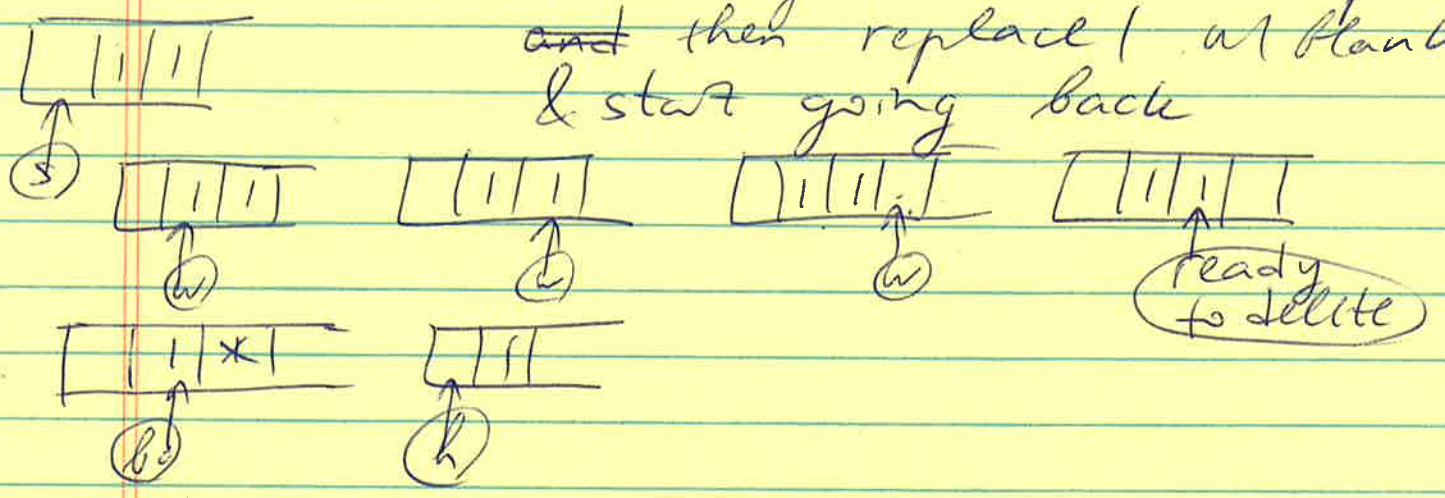 and then replace 1 w/ blank
& start going back
1 1
s
1 1
1 1
1 1
1 1
w
w
ready
to delite
1 *
1
b
h